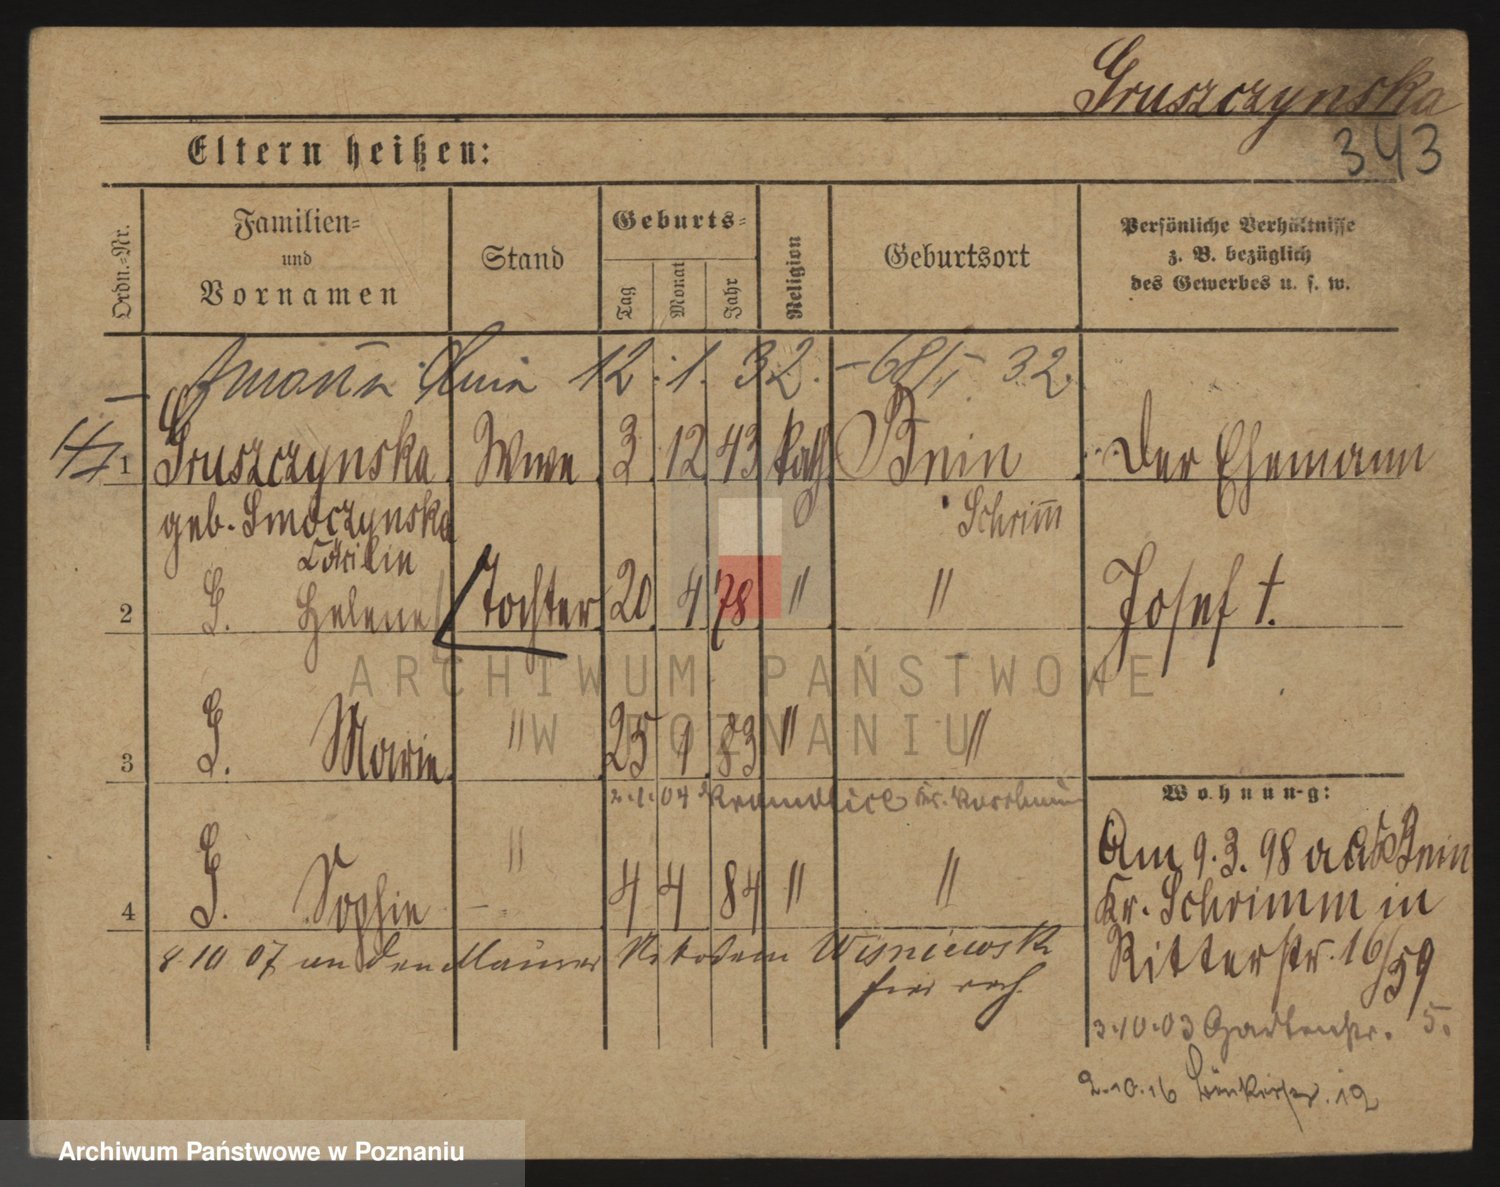 Gruszczynska
343
Eltern heißen:
Ordn.-Nr.
Familien-
und
Vornamen
Stand
Geburts-
Tag
Monat
Jahr
Religion
Geburtsort
Persönliche Verhältnisse
z. B. bezüglich
des Gewerbes u. s. w.
12. 1. 32. 32.
1 Gruszczynska Wwe 3 12 43 kath Bnin Der Ehemann
geb. Smoczynska Schrimm
Cäcilie
2 G. Helene Tochter 20 4 78 " " Josef †.
3 G. Marie " 25 1 83 " "
2.1.04
4 G. Sophie " 4 4 84 " "
8 10 07 an den Maurer Nikodem Wisniewski
Wohnung:
Am 9.3.98 aus Bnin
Kr. Schrimm in
Ritterstr. 16/59
3.10.03 Gartenstr. 5.
2.10.16 12
ARCHIWUM PAŃSTWOWE
W POZNANIU
Archiwum Państwowe w Poznaniu